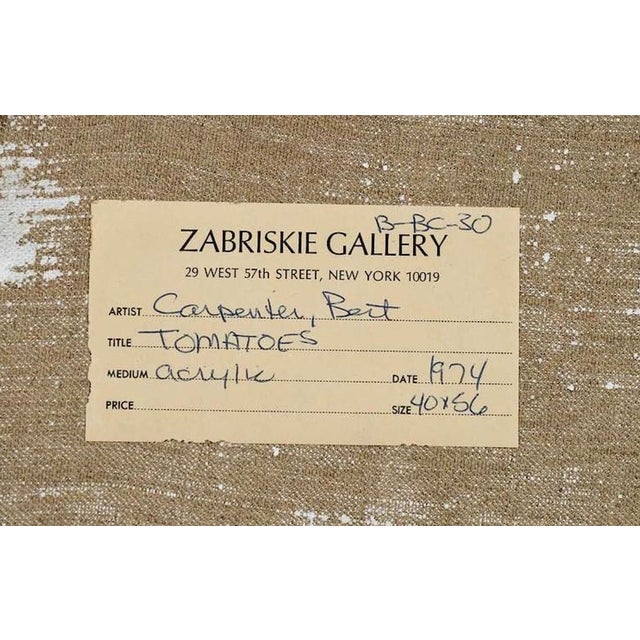 B-BC-30
ZABRISKIE GALLERY
29 WEST 57th STREET, NEW YORK 10019
ARTIST Carpenter, Bert
TITLE TOMATOES
MEDIUM acrylic DATE 1974
PRICE SIZE 40x56